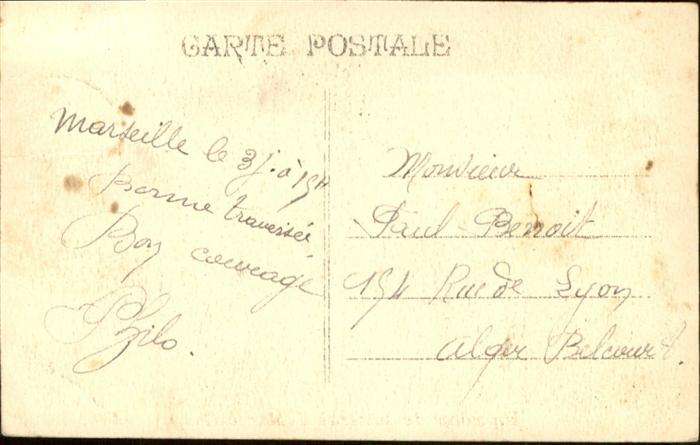 CARTE POSTALE
Marseille le 3
Bonne traversée
Bon courage
Philo.
Monsieur
Paul Benoit
154 Rue de Lyon
Alger Belcourt.